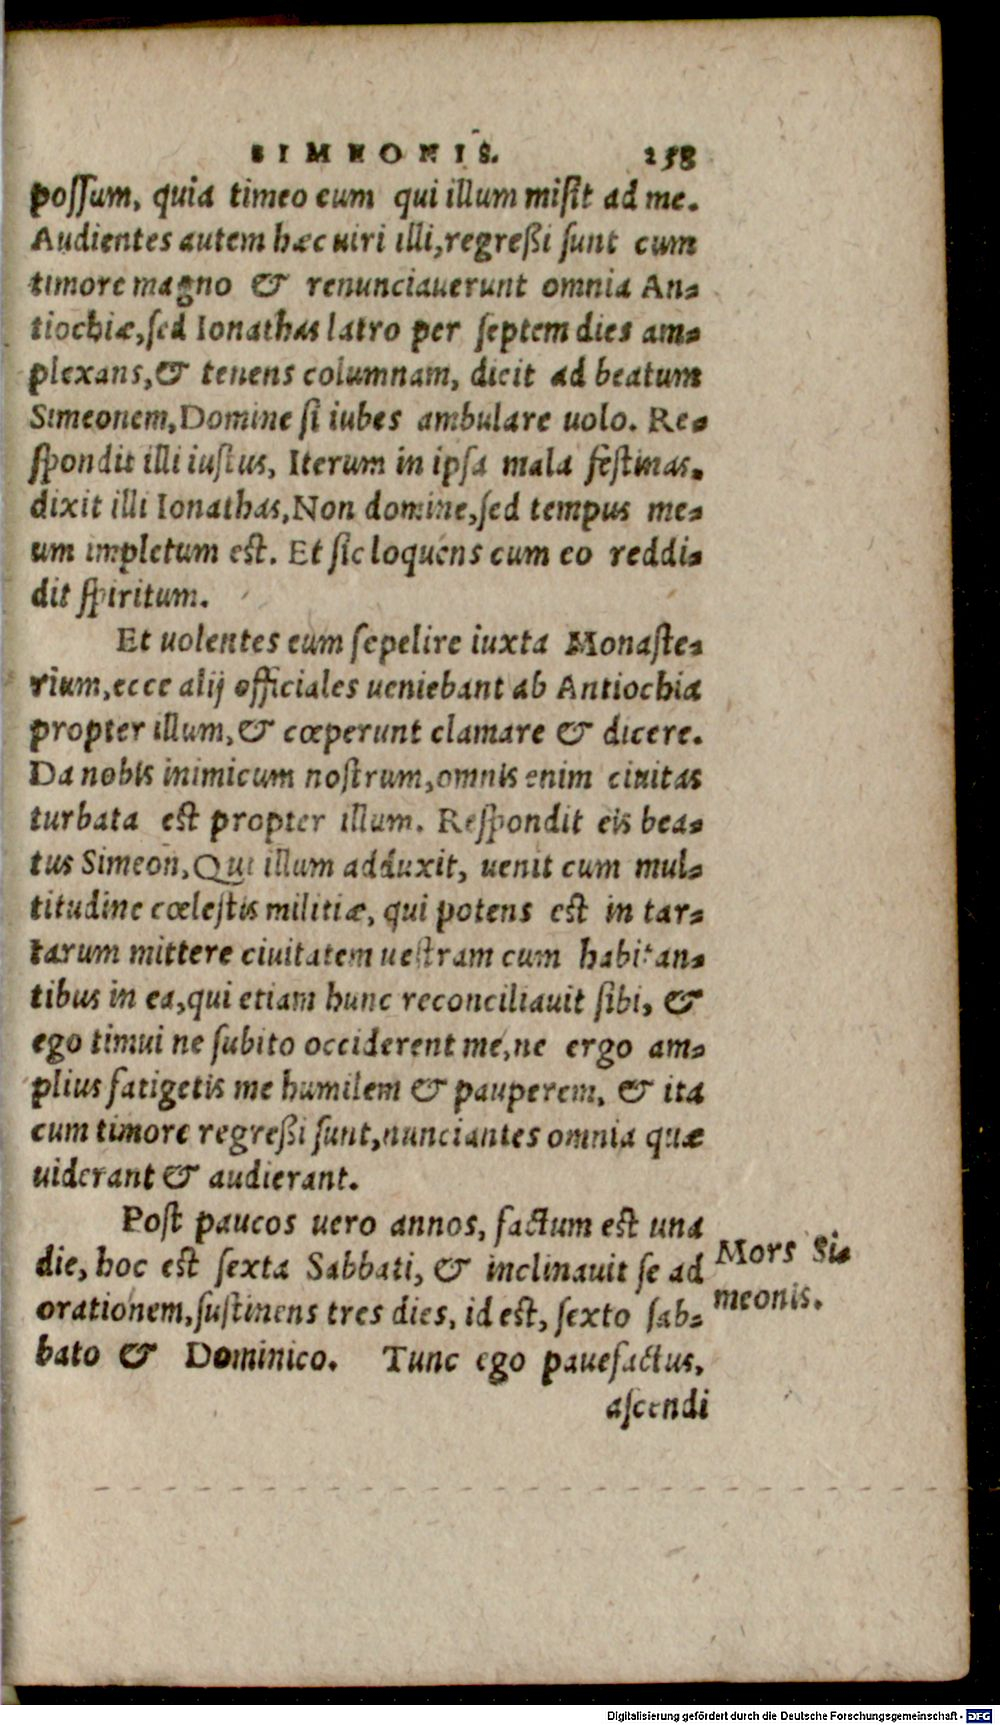 SIMEONIS. 258
possum, quia timeo eum qui illum misit ad me.
Audientes autem hæc uiri illi, regreßi sunt cum
timore magno & renunciauerunt omnia An-
tiochiæ, sed Ionathas latro per septem dies am-
plexans, & tenens columnam, dicit ad beatum
Simeonem, Domine si iubes ambulare uolo. Re-
spondit illi iustus, Iterum in ipsa mala festinas.
dixit illi Ionathas, Non domine, sed tempus me-
um impletum est. Et sic loquens cum eo reddi-
dit spiritum.
Et uolentes eum sepelire iuxta Monaste-
rium, ecce alij officiales ueniebant ab Antiochia
propter illum, & cœperunt clamare & dicere.
Da nobis inimicum nostrum, omnis enim ciuitas
turbata est propter illum. Respondit eis bea-
tus Simeon, Qui illum adduxit, uenit cum mul-
titudine cœlestis militiæ, qui potens est in tar-
tarum mittere ciuitatem uestram cum habitan-
tibus in ea, qui etiam hunc reconciliauit sibi, &
ego timui ne subito occiderent me, ne ergo am-
plius fatigetis me humilem & pauperem, & ita
cum timore regreßi sunt, nunciantes omnia quæ
uiderant & audierant.
Post paucos uero annos, factum est una
die, hoc est sexta Sabbati, & inclinauit se ad
orationem, sustinens tres dies, id est, sexto sab-
bato & Dominico. Tunc ego pauefactus,
ascendi
Mors Si-
meonis.
Digitalisierung gefördert durch die Deutsche Forschungsgemeinschaft - DFG